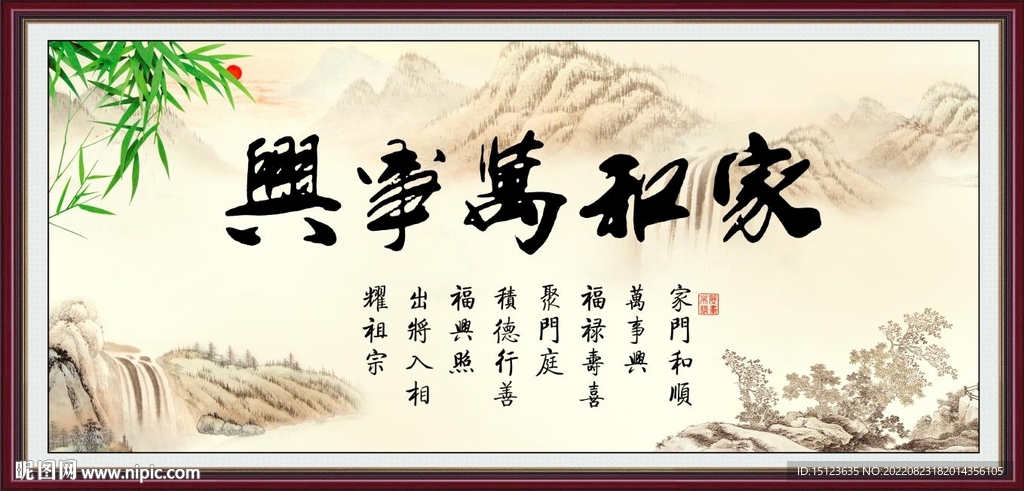 家和萬事興
家門和順
萬事興
福禄壽喜
聚門庭
積德行善
福興照
出將入相
耀祖宗
昵图网 www.nipic.com
ID:15123635 NO:20220823182014356105